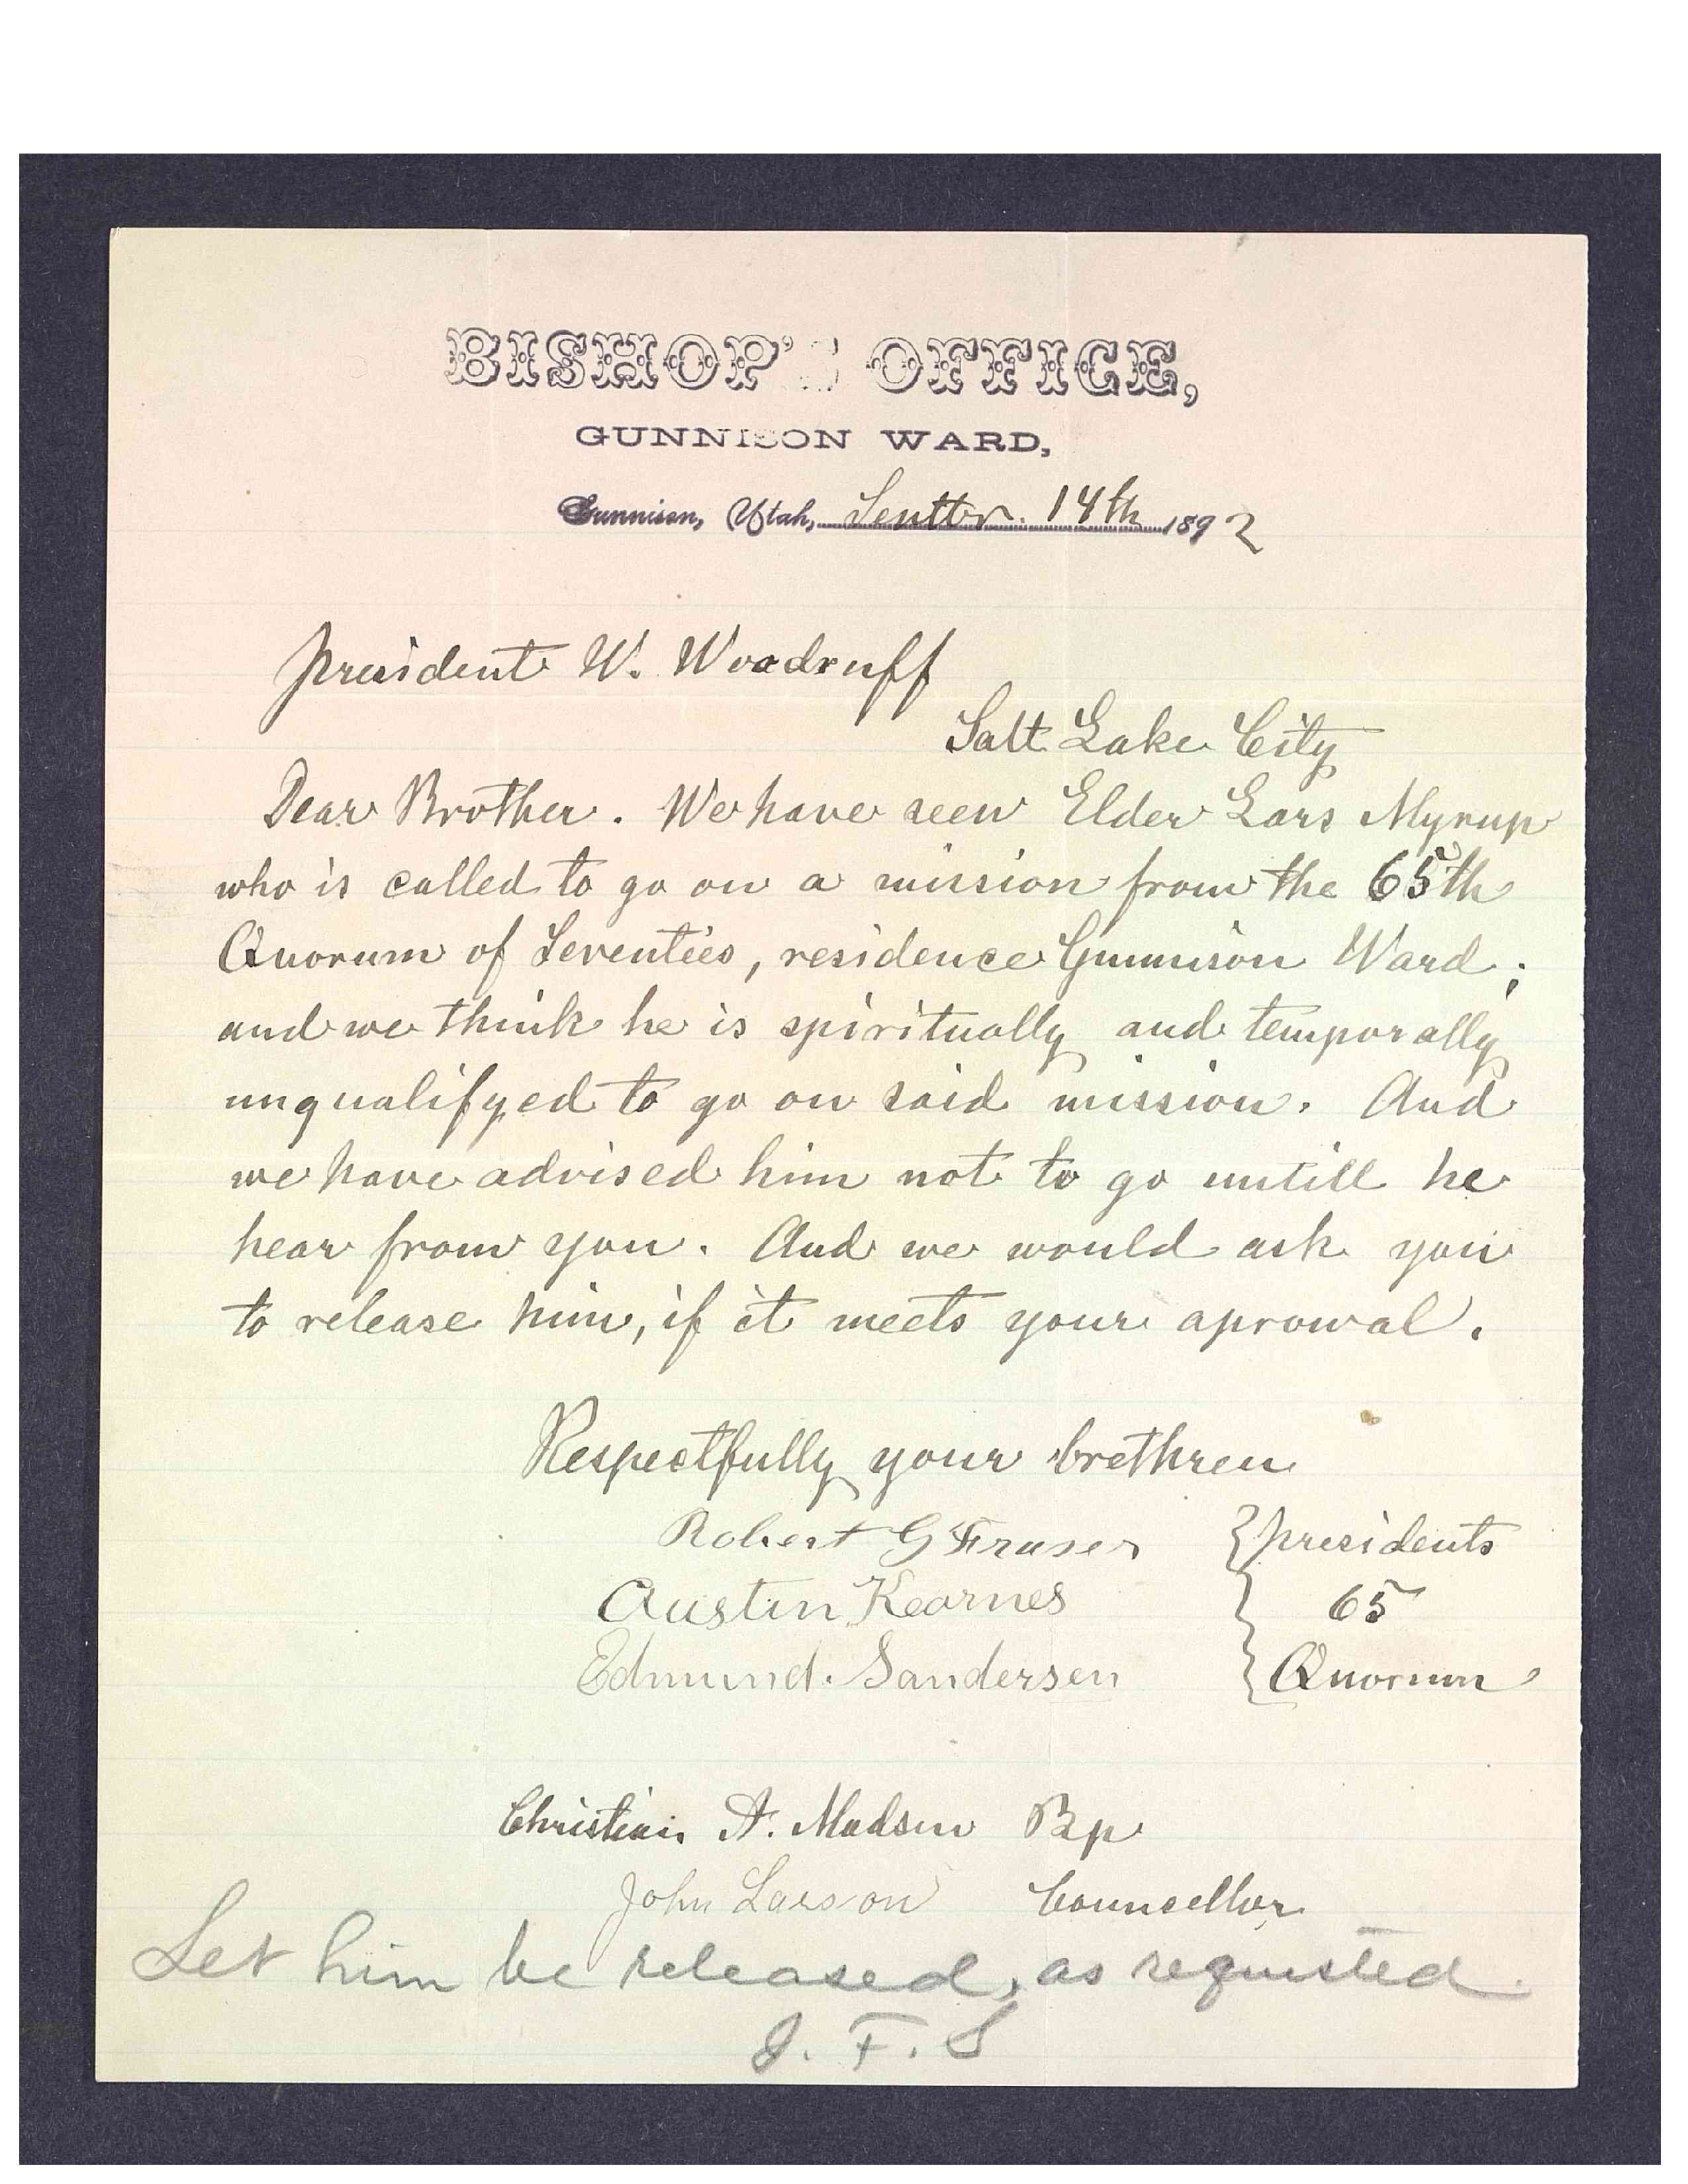 BISHOP'S OFFICE,
GUNNISON WARD,
Gunnison, Utah, Septbr. 14th 1892
President W. Woodruff
Salt Lake City
Dear Brother. We have seen Elder Lars Myrup
who is called to go on a mission from the 65th
Quorum of Seventies, residence Gunnison Ward;
and we think he is spiritually and temporally
unqualifyed to go on said mission. And
we have advised him not to go untill he
hear from you. And we would ask you
to release him, if it meets your aprowal.
Respectfully your brethren
Robert G Fraser } presidents
Austin Kearnes } 65
Edmund. Sandersen } Quorum
Christian A. Madsen Bp
John Larson Councellor
Let him be released, as requested.
J. F. S